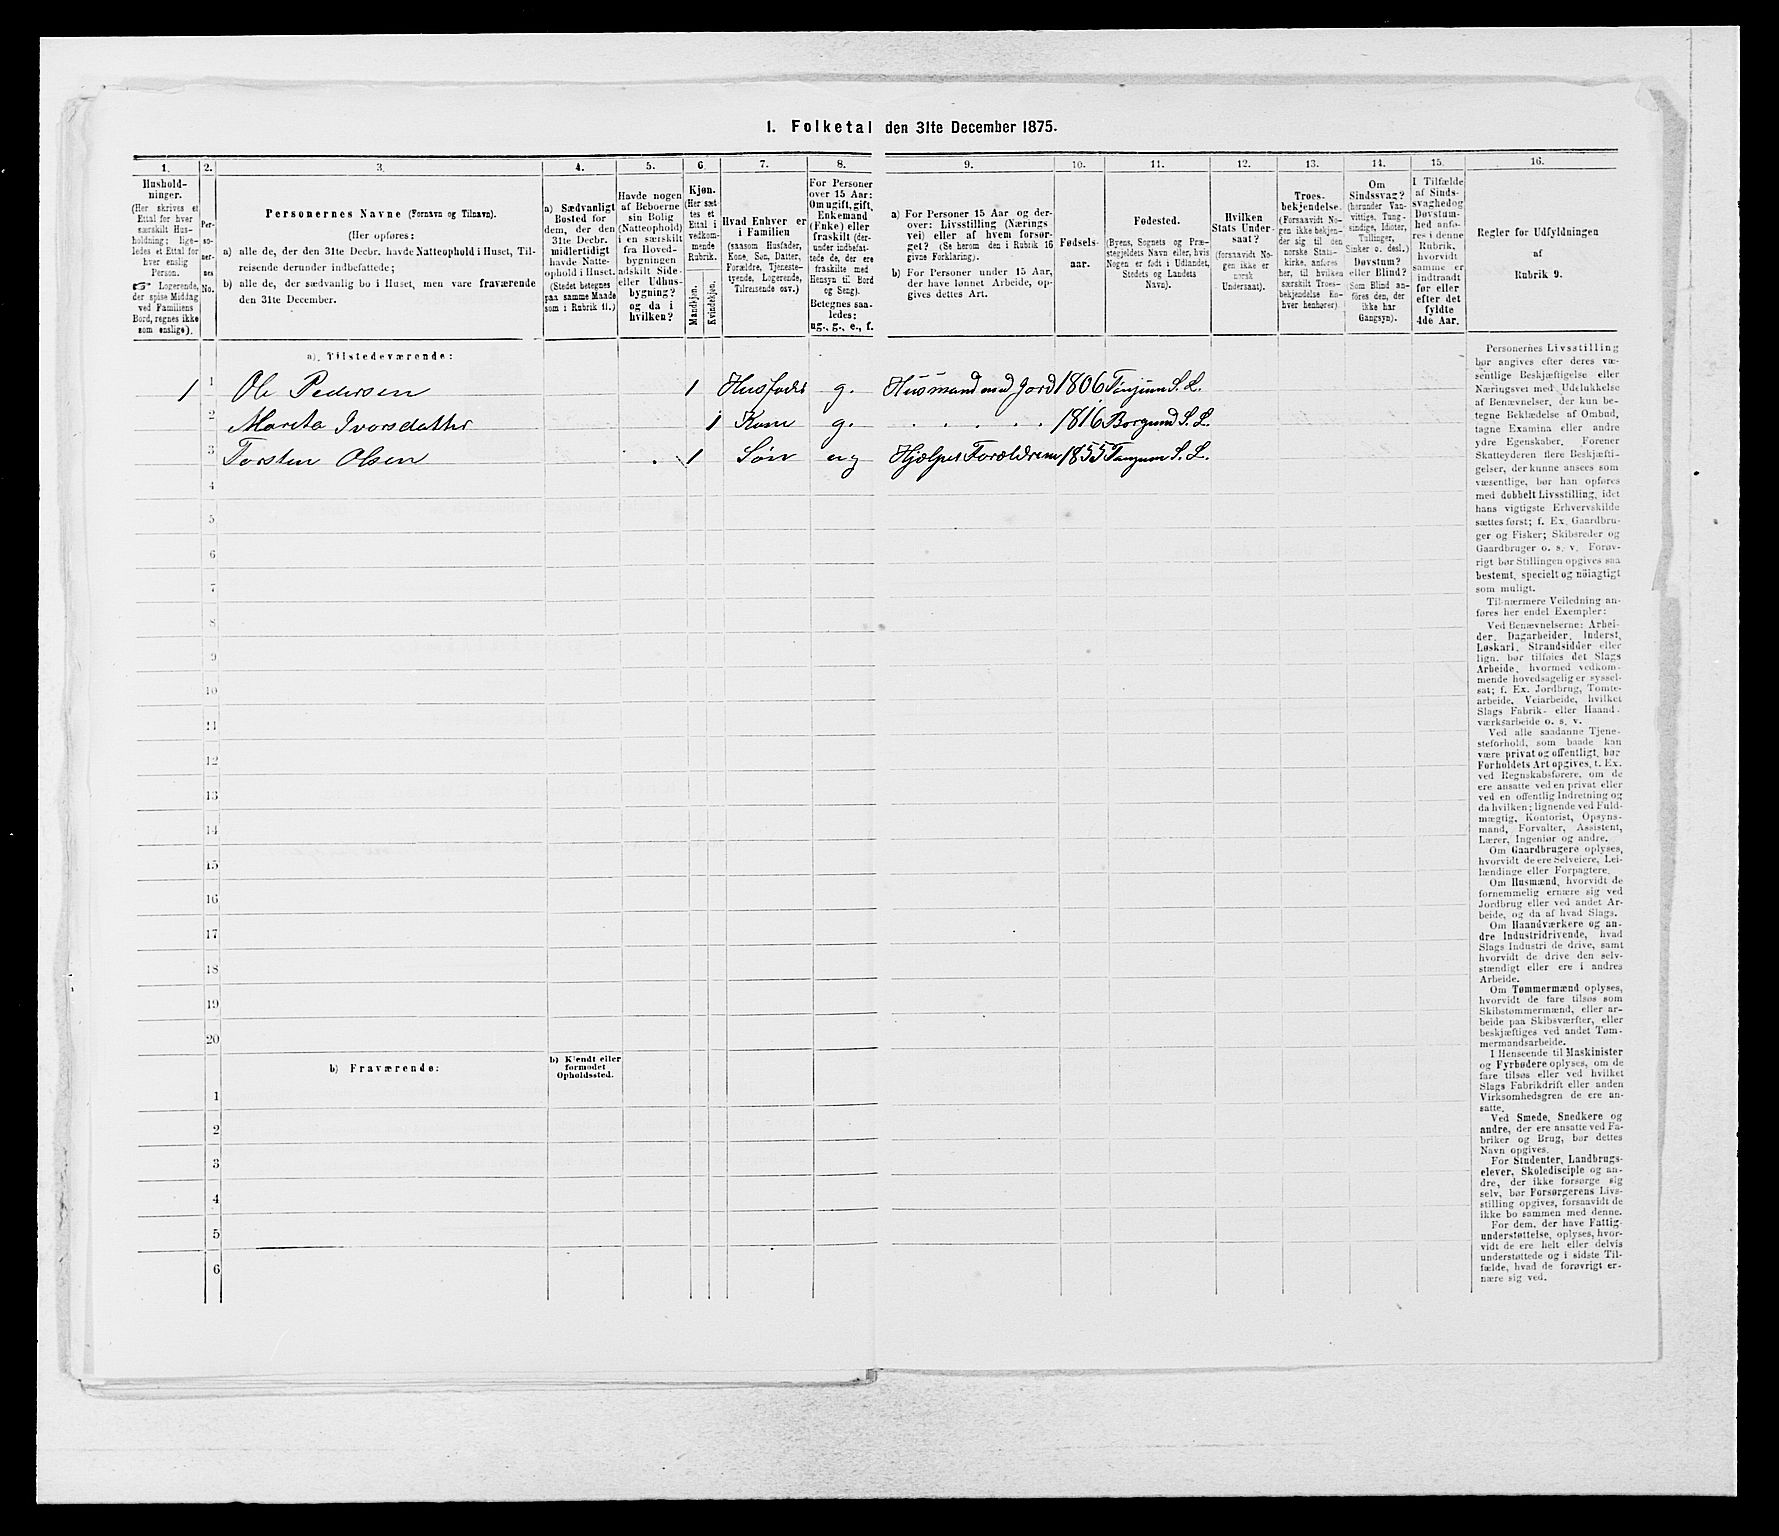 1. Folketal den 31te December 1875.
1. 2. 3. 4. 5. 6. 7. 8. 9. 10. 11. 12. 13. 14. 15. 16.
Hushold-
ninger.
(Her skrives et
Ettal for hver
særskilt Hus-
holdning; lige-
ledes et Ettal for
hver enslig
Person.
☞ Logerende,
der spise Middag
ved Familiens
Bord, regnes ikke
som enslige).
Per-
so-
ner-
nes
No.
Personernes Navne (Fornavn og Tilnavn).
(Her opføres:
a) alle de, der den 31te Decbr. havde Natteophold i Huset, Til-
reisende derunder indbefattede;
b) alle de, der sædvanlig bo i Huset, men vare fraværende
den 31te December.
a) Sædvanligt
Bosted for
dem, der den
31te Decbr.
midlertidigt
havde Natte-
ophold i Huset.
(Stedet betegnes
paa samme Maade
som i Rubrik 11.)
Havde nogen
af Beboerne
sin Bolig
(Natteophold)
i en særskilt
fra Hoved-
bygningen
adskilt Side-
eller Udhus-
bygning?
og da i
hvilken?
Kjøn.
(Her sæt
tes et
Ettal i
vedkom-
mende
Rubrik.
Mandkjøn.
Kvindekjøn.
Hvad Enhver er
i Familien
(saasom Husfader,
Kone, Søn, Datter,
Forældre, Tjeneste-
tyende, Logerende,
Tilreisende osv.)
For Personer
over 15 Aar:
Om ugift, gift,
Enkemand
(Enke) eller
fraskilt (der-
under indbefat-
tede de, der ere
fraskilte med
Hensyn til Bord
og Seng).
Betegnes saa-
ledes:
ug., g., e., f.
a) For Personer 15 Aar og der-
over: Livsstilling (Nærings
vei) eller af hvem forsør-
get? (Se herom den i Rubrik 16
givne Forklaring).
b) For Personer under 15 Aar,
der have lønnet Arbeide, op-
gives dettes Art.
Fødsels-
aar.
Fødested.
(Byens, Sognets og Præ-
stegjeldets Navn eller, hvis
Nogen er født i Udlandet,
Stedets og Landets
Navn).
Hvilken
Stats Under-
saat?
(forsaavidt No-
gen ikke er
norsk
Undersaat).
Troes-
bekjendelse.
(Forsaavidt No-
gen ikke bekjen-
der sig til den
norske Stats-
kirke, anføres
her, til hvilken
særskilt Troes-
bekjendelse En-
hver henhører).
Om
Sindssvag?
(herunder Van-
vittige, Tung-
sindige, Idioter,
Tullinger,
Sinker o. desl.)
Døvstum?
eller Blind?
(Som Blind an-
føres den, der
ikke har
Gangsyn).
I Tilfælde
af Sinds-
svaghed og
Døvstum-
hed anfø-
res i denne
Rubrik,
hvorvidt
samme er
indtraadt
før eller
efter det
fyldte
4de Aar.
Regler for Udfyldningen
af
Rubrik 9.
a). Tilstedeværende:
1 1 Ole Pedersen 1 Husfader g. Husmand med Jord 1806 Tønjum S. L.
2 Marita Ivorsdatter 1 Kone g. . . . . . . 1816 Borgund S. L.
3 Torsten Olsen 1 Søn ug Hjælper Forældrene 1855 Tønjum S. L.
4
5
6
7
8
9
10
11
12
13
14
15
16
17
18
19
20
b) Fraværende:
b) Kjendt eller
formodet
Opholdssted.
1
2
3
4
5
6
Personernes Livsstilling
bør angives efter deres væ-
sentlige Beskjæftigelse eller
Næringsvei med Udelukkelse
af Benævnelser, der kun be-
tegne Beklædelse af Ombud,
tagne Examina eller andre
ydre Egenskaber. Forener
Skatteyderen flere Beskjæfti-
gelser, der kunne ansees som
væsentlige, bør han opføres
med dobbelt Livsstilling, idet
hans vigtigste Erhvervskilde
sættes først; f. Ex. Gaardbru-
ger og Fisker; Skibsreder og
Gaardbruger o. s. v. Forøv-
rigt bør Stillingen opgives saa
bestemt, specielt og nöiagtigt
som muligt.
Til nærmere Veiledning an-
føres her endel Exempler:
Ved Benævnelserne: Arbei-
der, Dagarbeider, Inderst,
Løskarl, Strandsidder eller
lign. bør tilføies det Slags
Arbeide, hvormed vedkom-
mende hovedsagelig er syssel-
sat; f. Ex. Jordbrug, Tomte-
arbeide, Veiarbeide, hvilket
Slags Fabrik- eller Haand-
værksarbeide o. s. v.
Ved alle saadanne Tjene-
steforhold, som baade kan
være privat og offentligt, bør
Forholdets Art opgives, f. Ex.
ved Regnskabsførere, om de
ere ansatte ved en privat eller
ved en offentlig Indretning og
da hvilken; lignende ved Fuld-
mægtig, Kontorist, Opsyns-
mand, Forvalter, Assistent,
Lærer, Ingeniør og andre.
Om Gaardbrugere oplyses,
hvorvidt de ere Selveiere, Lei-
lændinge eller Forpagtere.
Om Husmænd, hvorvidt de
fornemmelig ernære sig ved
Jordbrug eller ved andet Ar-
beide, og da af hvad Slags.
Om Haandværkere og an-
dre Industridrivende, hvad
Slags Industri de drive, samt
hvorvidt de drive den selv-
stændigt eller ere i andres
Arbeide.
Om Tømmermænd oplyses,
hvorvidt de fare tilsøs som
Skibstømmermænd, eller ar-
beide paa Skibsværfter, eller
beskjæftiges ved andet Tøm-
mermandsarbeide.
I Henseende til Maskinister
og Fyrbødere oplyses, om de
fare tilsøs eller ved hvilket
Slags Fabrikdrift eller anden
Virksomhedsgren de ere an-
satte.
Ved Smede, Snedkere og
andre, der ere ansatte ved Fa-
briker og Brug, bør dettes
Navn opgives.
For Studenter, Landbrugs-
elever, Skoledisciple og an-
dre, der ikke forsørge sig
selv, bør Forsørgerens Livs-
stilling opgives, forsaavidt de
ikke bo sammen med denne.
For dem, der have Fattig-
understøttelse, oplyses, hvor-
vidt de ere helt eller delvis
understøttede og i sidste Til-
fælde, hvad de forøvrigt er-
nære sig ved.